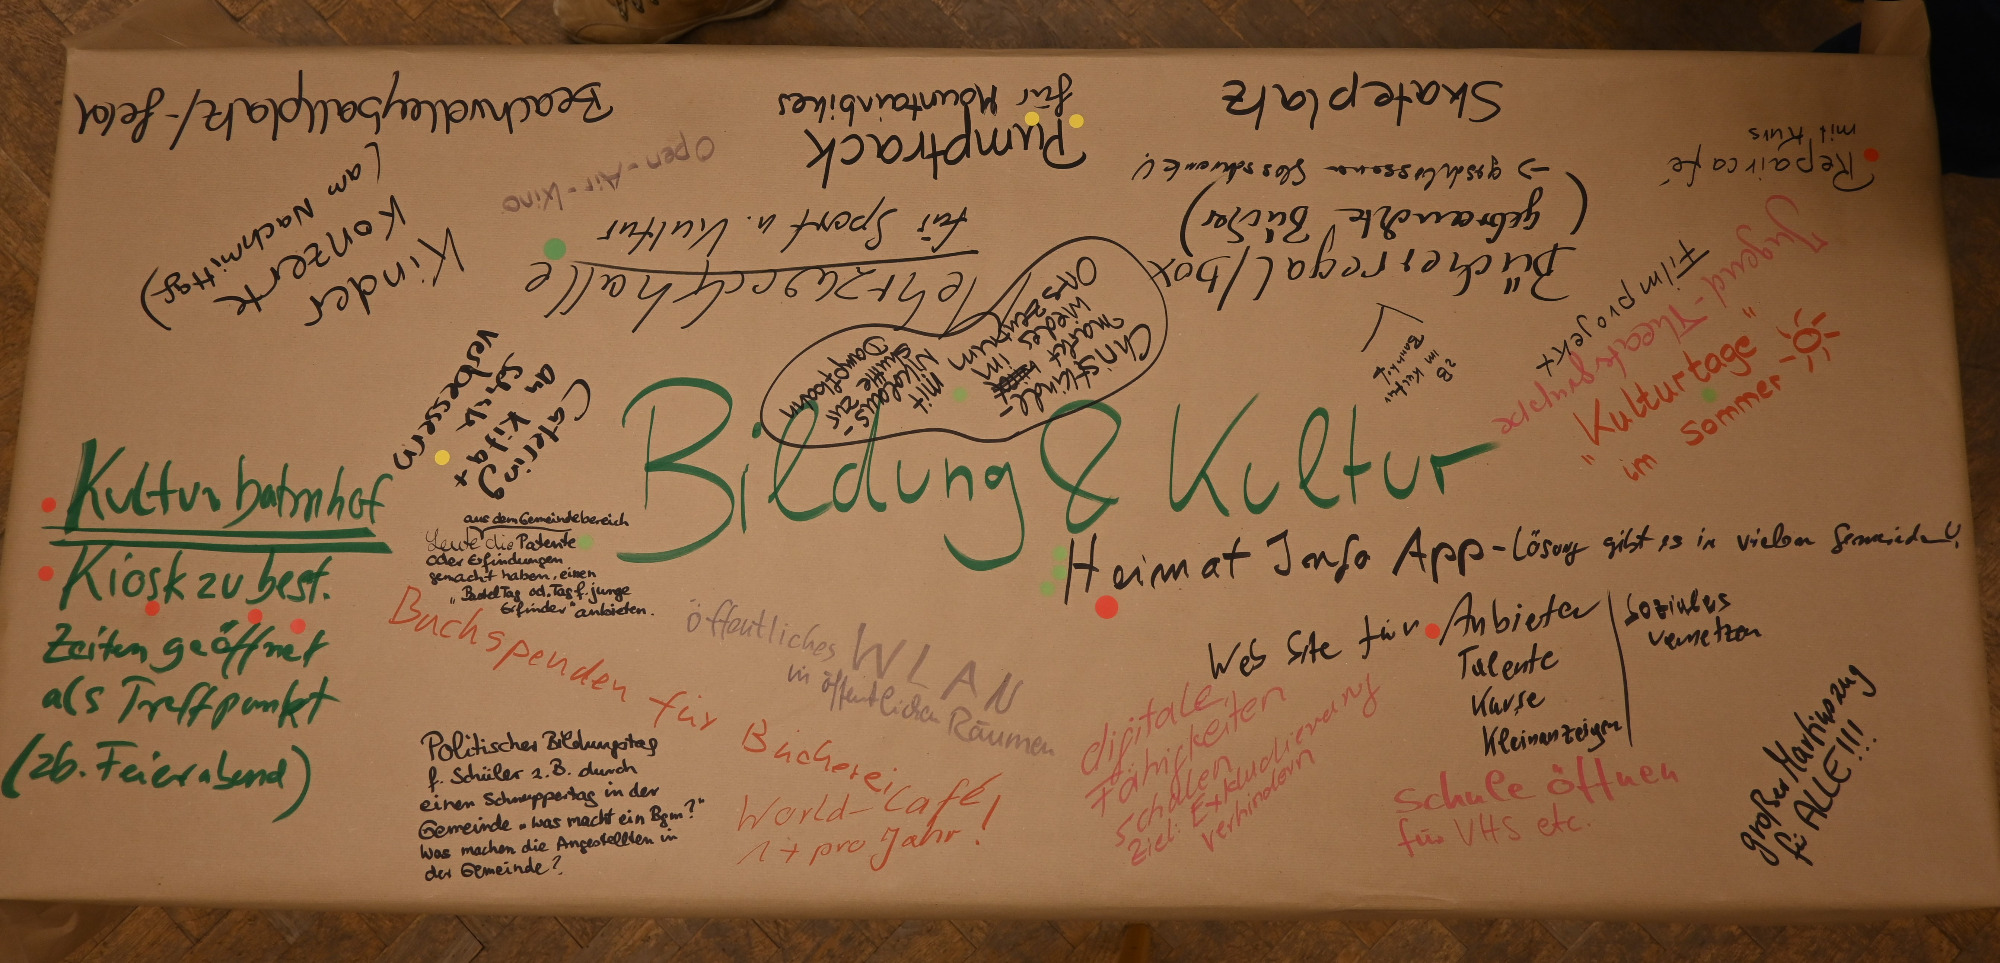 Beachvolleyballplatz/-feld
Pumptrack
für Mountainbikes
Skateplatz
Repaircafé
mit Kurs
Open-Air-Kino
Kinder
Konzerte
(am Nachmittag)
Mehrzweckhalle
für Sport u. Kultur
Bücherregal/box
(gebrauchte Bücher)
-> geschlossener Glasschrank!
zB Kultur
im Bahnhof
Filmprojekt
Jugend-Theatergruppe
"Kulturtage"
im Sommer
Christkindl-
markt
wieder im
Ortszentrum
mit
Nikolaus-
shuttle zur
Dampfbahn
Catering
an Kita +
Schule
verbessern
Bildung & Kultur
Kulturbahnhof
Kiosk zu best.
Zeiten geöffnet
als Treffpunkt
(zb. Feierabend)
aus dem Gemeindebereich
Leute die Patente
oder Erfindungen
gemacht haben, einen
"BastelTag od. Tag f. junge
Erfinder" anbieten.
Heimat Info App-Lösung gibt es in vielen Gemeinden!
Buchspenden für Bücherei
öffentliches WLAN
in öffentlichen Räumen
Web Site für Anbieter
Talente
Kurse
Kleinanzeigen
Soziales
vernetzen
Politischer Bildungstag
f. Schüler z.B. durch
einen Schnuppertag in der
Gemeinde "was macht ein Bgm?"
Was machen die Angestellten in
der Gemeinde?
World-Café
1x pro Jahr!
digitale
Fähigkeiten
schulen
Ziel: Exkludierung
verhindern
Schule öffnen
für VHS etc.
großer Martinszug
für ALLE!!!